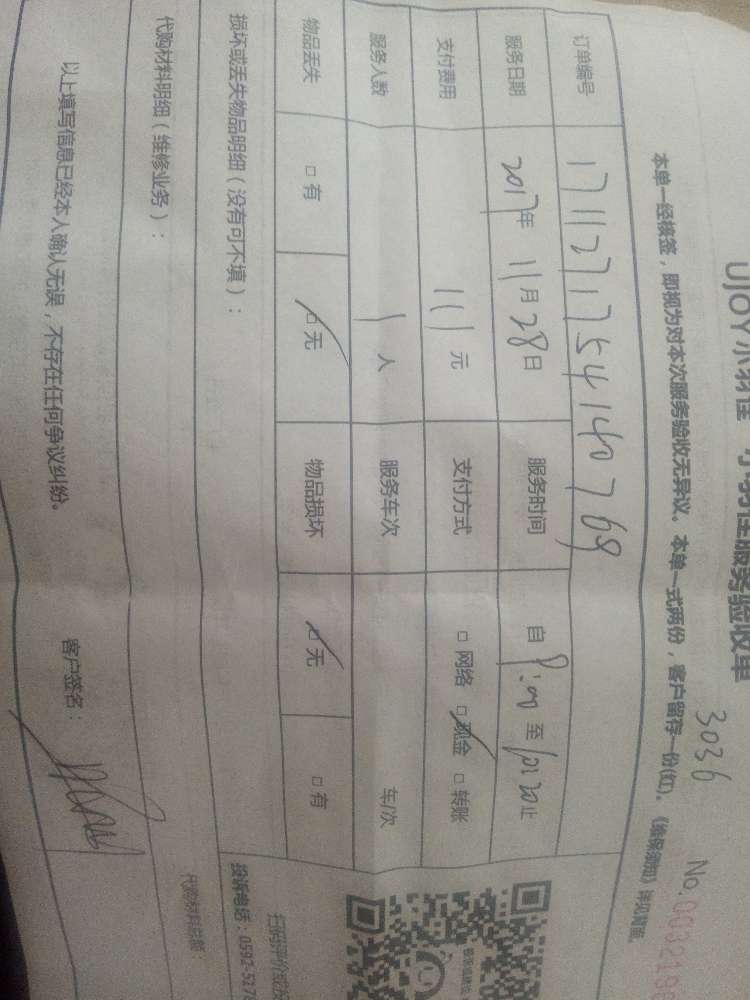 UJOY小羽佳 小羽佳服务验收单
3036
No.
本单一经核签，即视为对本次服务验收无异议。本单一式两份，客户留存一份(红)。《维保须知》详见背面。
订单编号 171127175414076
服务日期 2017年 11月 28日 服务时间 自 至 止
支付费用 111 元 支付方式 □ 网络 □ 现金 □ 转账
服务人数 1 人 服务车次 车/次
物品丢失 □ 有 □ 无 物品损坏 □ 无 □ 有
损坏或丢失物品明细（没有可不填）：
代购材料明细（维修业务）：
代购材料总额
投诉电话：0592-517
以上填写信息已经本人确认无误，不存在任何争议纠纷。
客户签名：